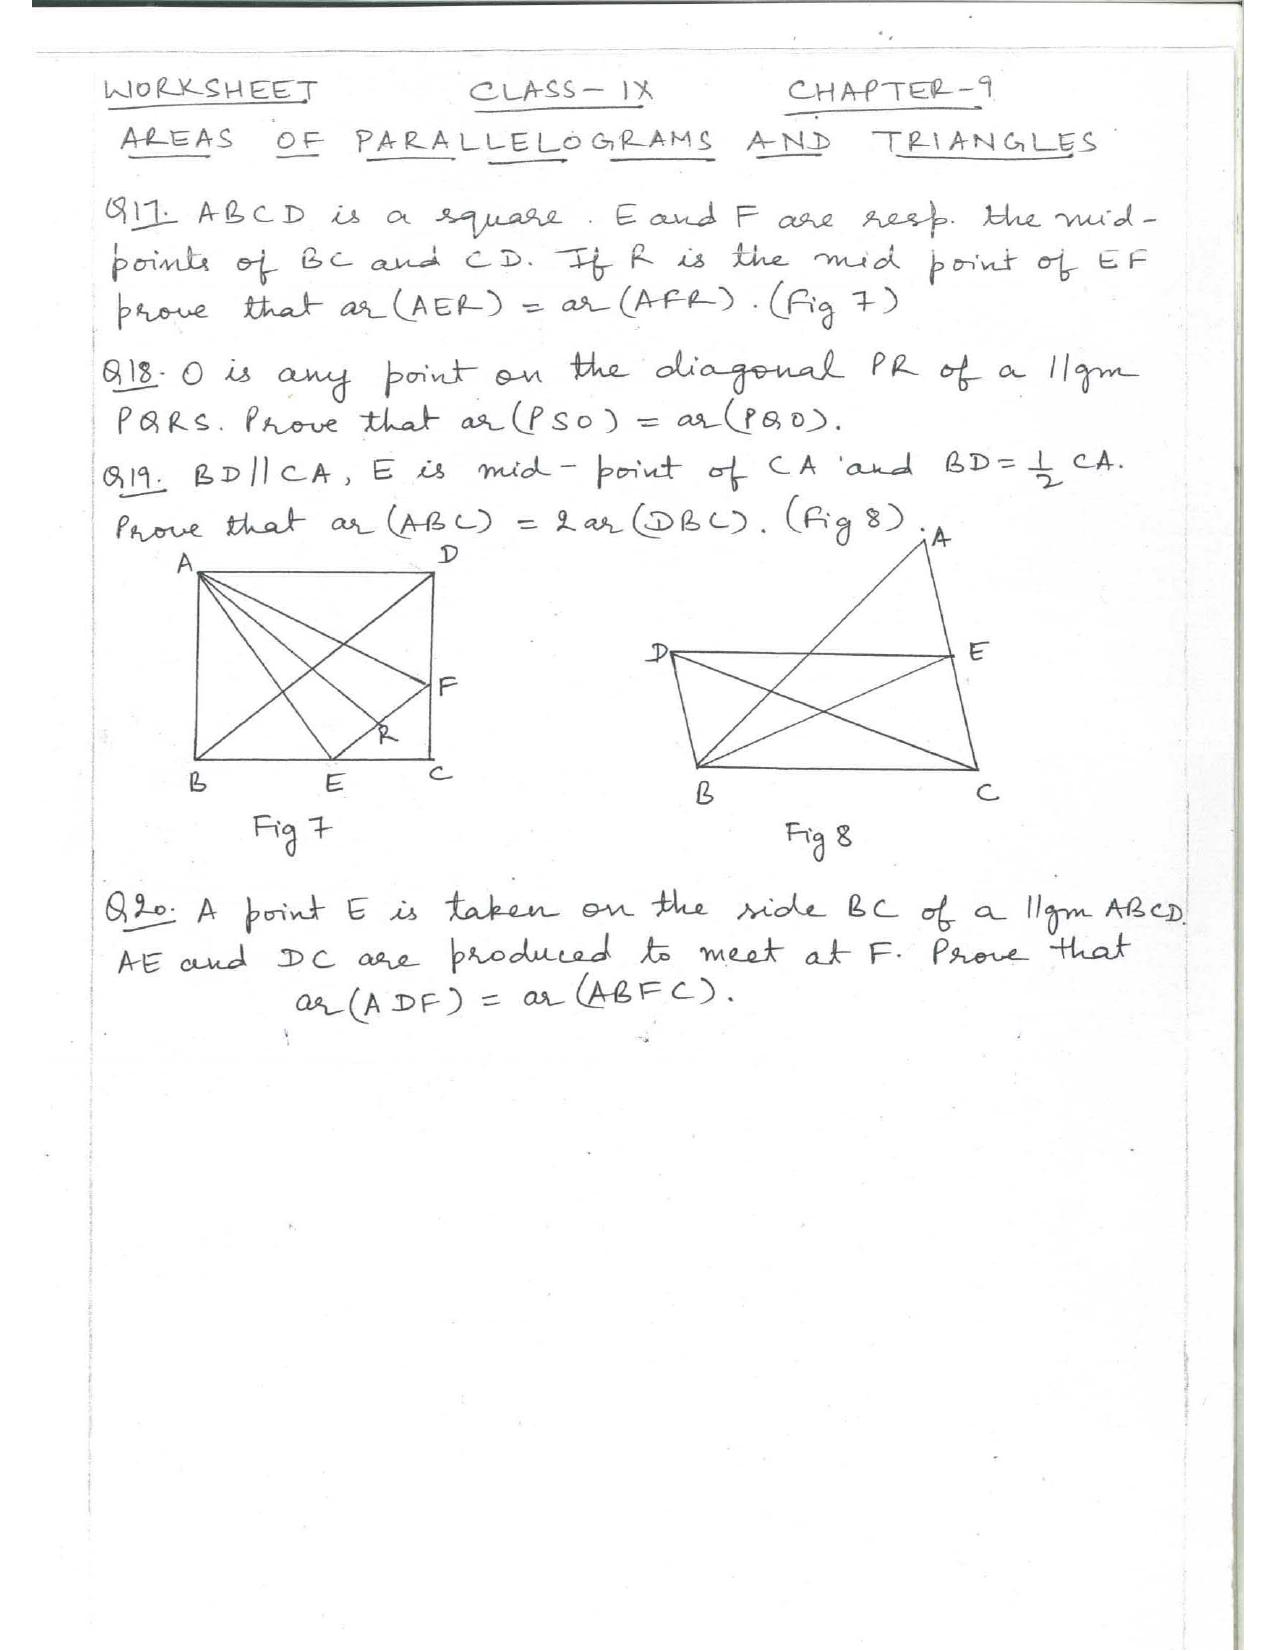 WORKSHEET CLASS-IX CHAPTER-9
AREAS OF PARALLELOGRAMS AND TRIANGLES
Q17. ABCD is a square. E and F are resp. the mid-
points of BC and CD. If R is the mid point of EF
prove that ar (AER) = ar (AFR). (Fig 7)
Q18. O is any point on the diagonal PR of a ||gm
PQRS. Prove that ar (PSO) = ar (PQO).
Q19. BD || CA, E is mid-point of CA and BD = 1/2 CA.
Prove that ar (ABC) = 2 ar (DBC). (Fig 8).
A D
F
R
B E C
Fig 7
A
D E
B C
Fig 8
Q20. A point E is taken on the side BC of a ||gm ABCD.
AE and DC are produced to meet at F. Prove that
ar (ADF) = ar (ABFC).